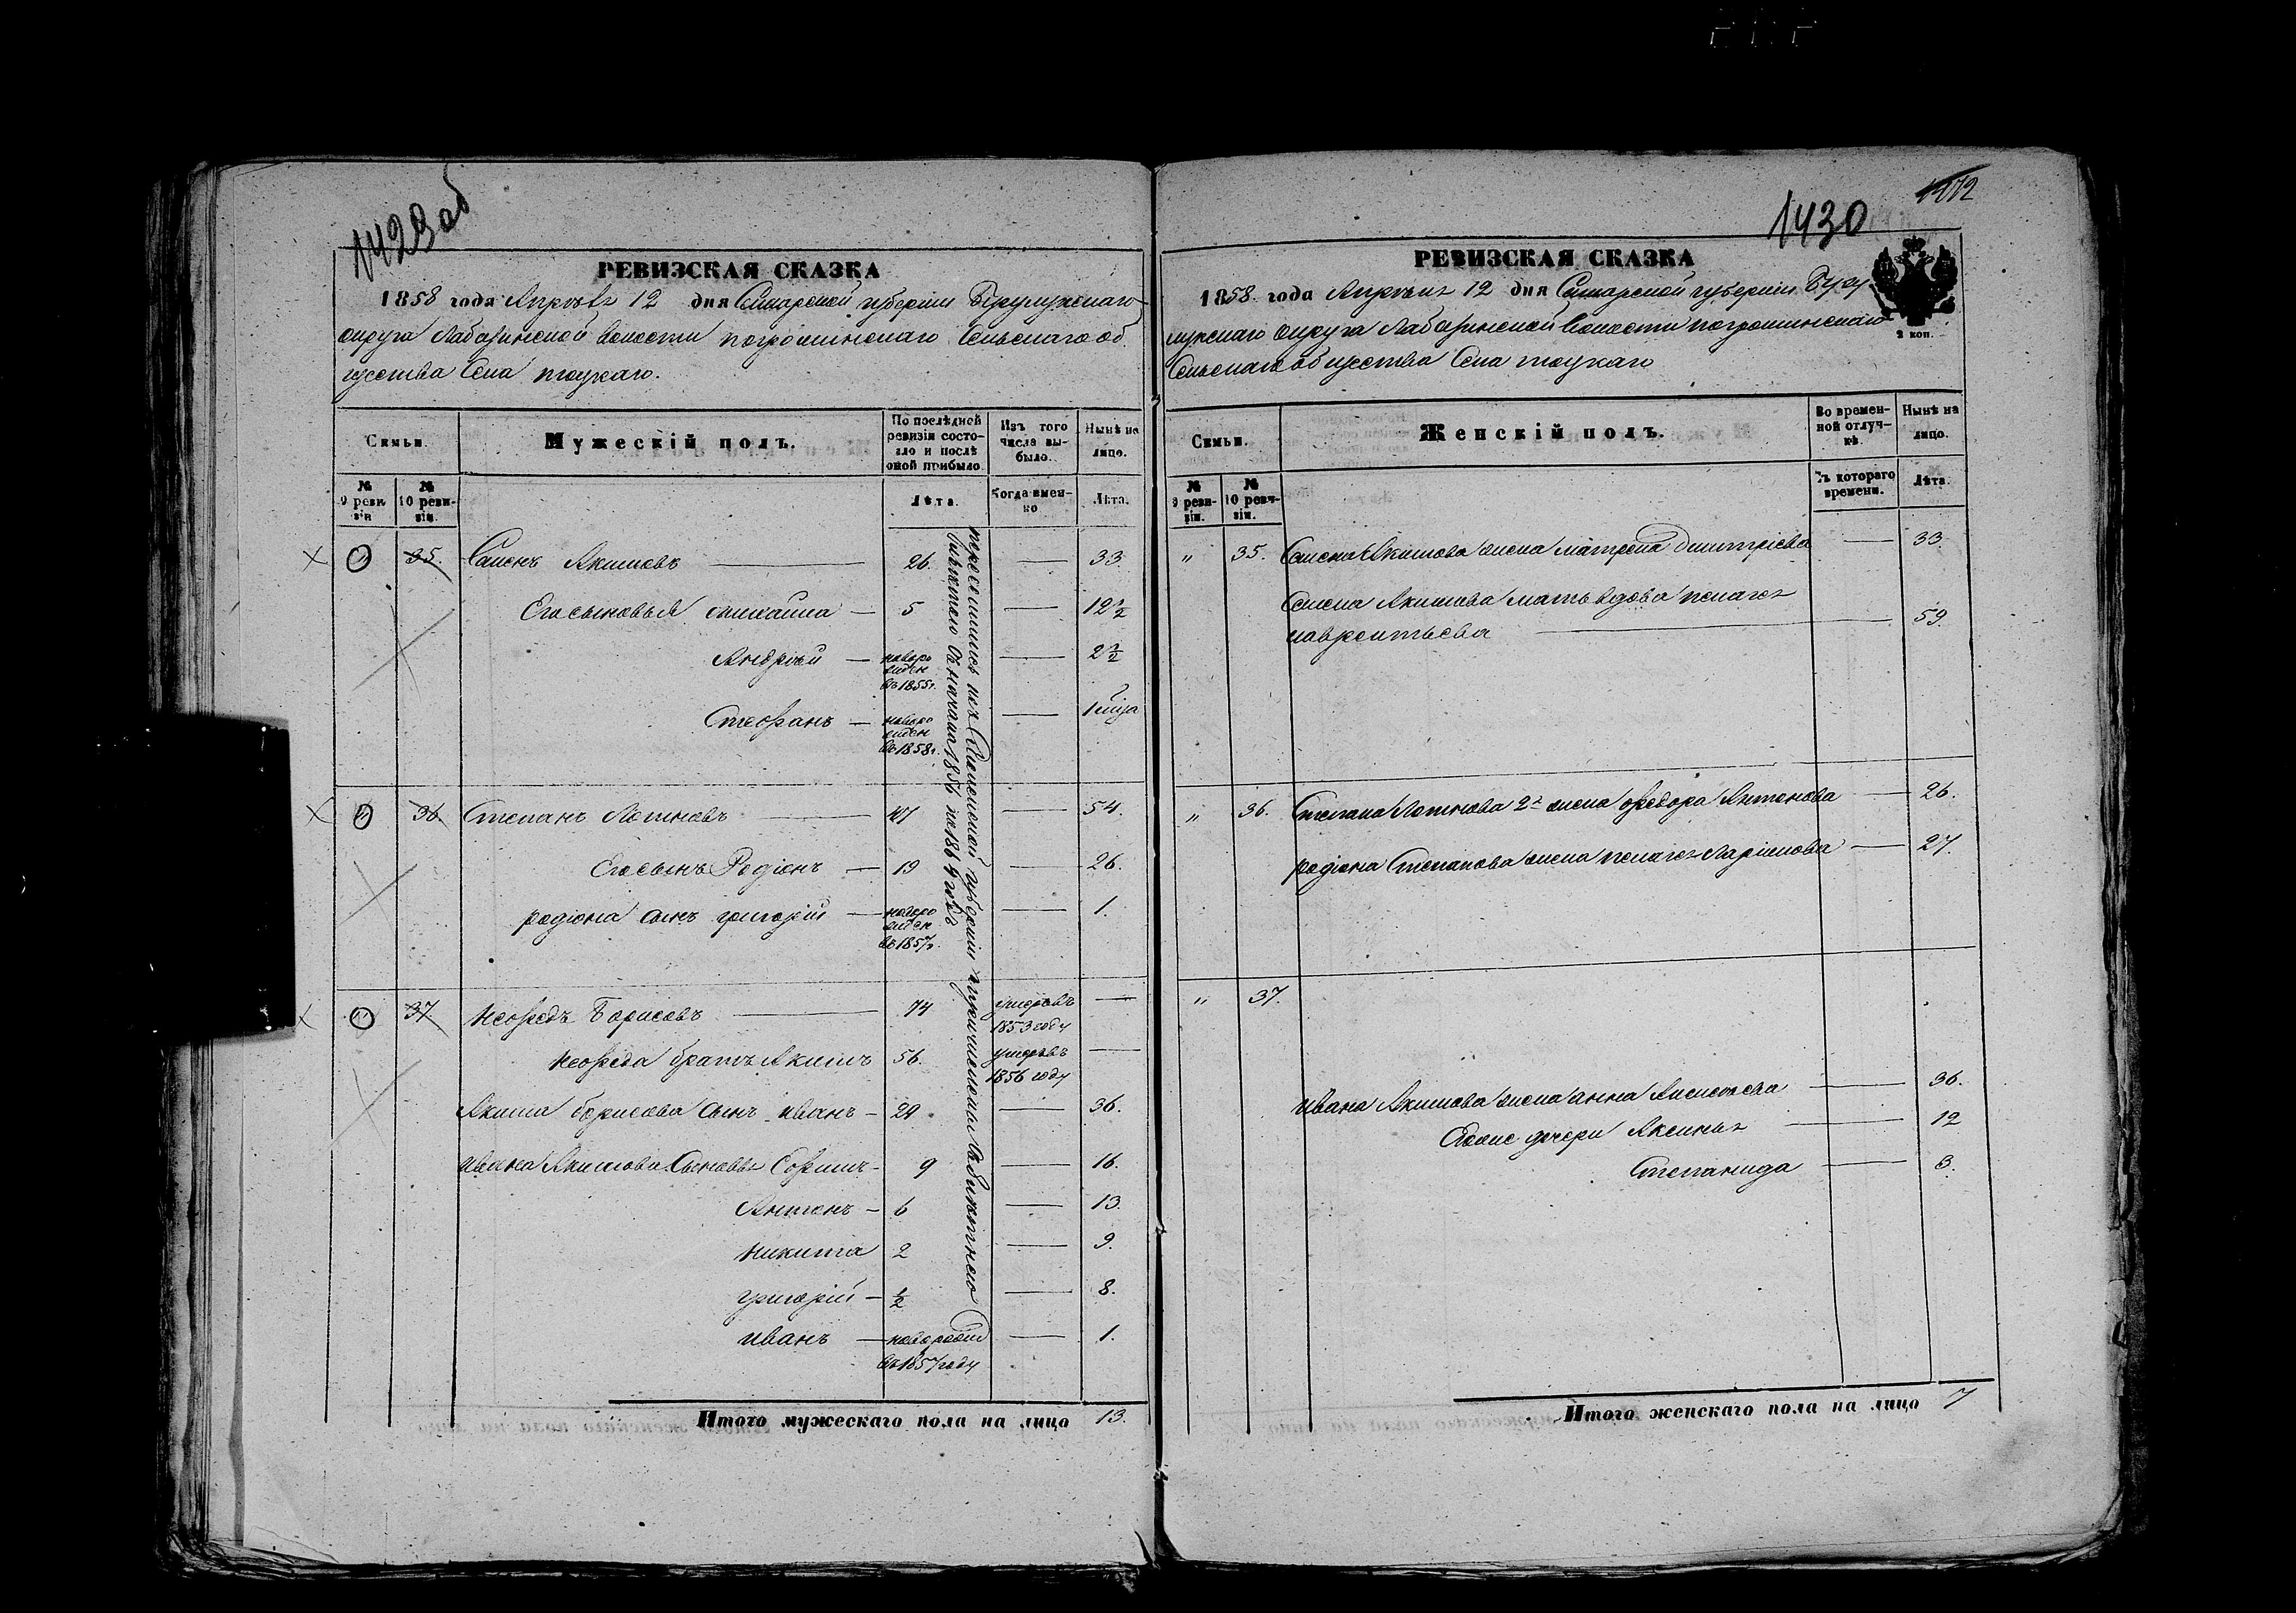 1429 об
РЕВИЗСКАЯ СКАЗКА
1858 года Апрѣля 12 дня Самарской губерніи Бугурусланскаго
округа Лабазинской волости погроминскаго Сельскаго об
щества Села тоцкаго.
Семьи.
Мужескій полъ.
По послѣдней ревизіи состояло и послѣ оной прибыло.
Изъ того числа выбыло.
Нынѣ на лицо.
№ 9 ревизіи
№ 10 ревизіи.
Лѣта.
Когда именно
Лѣта.
35. Семенъ Акимовъ 26. — 33.
Его сыновья — 5 — 12 1/2
Андрей — новорожден въ 1855 г. — 2 1/2
Стефанъ — новорожден въ 1858 г. — 1 мѣсяца
36. Степанъ Логиновъ 47 — 54.
Его сынъ Родіонъ — 19 — 26.
родіона сынъ григорій — новорожден въ 1857 г. — 1.
37. Нефедъ Борисовъ 74 умеръ въ 1853 году —
Нефеда братъ Акимъ 56. умеръ въ 1856 году —
Акима борисова сынъ иванъ — 29 — 36.
ивана Акимова Сыновья — 9 — 16.
Антонъ — 6 — 13.
Никита 2 — 9.
григорій — 1/2 — 8.
иванъ — новорожден въ 1857 году — 1.
переселились изъ губерніи
Итого мужескаго пола на лицо 13.
1072
1430
РЕВИЗСКАЯ СКАЗКА
1858 года Апрѣля 12 дня Самарской губерніи Бугу
русланскаго округа Лабазинской волости погроминскаго
Сельскаго общества Села тоцкаго
2 коп.
Семьи.
Женскій полъ.
Во временной отлучкѣ.
Нынѣ на лицо.
№ 9 ревизіи.
№ 10 ревизіи.
Съ котораго времени.
Лѣта.
" 35. Семена Акимова жена матрена дмитріева — 33.
Семена Акимова мать вдова пелагея
лаврентьева — 59.
" 36. Степана Логинова 2я жена федора Антонова — 26.
родіона Степанова жена пелагея Ларіонова — 27.
" 37.
ивана Акимова жена анна — 36.
дочери Аксинья — 12
Степанида — 3.
Итого женскаго пола на лицо 7